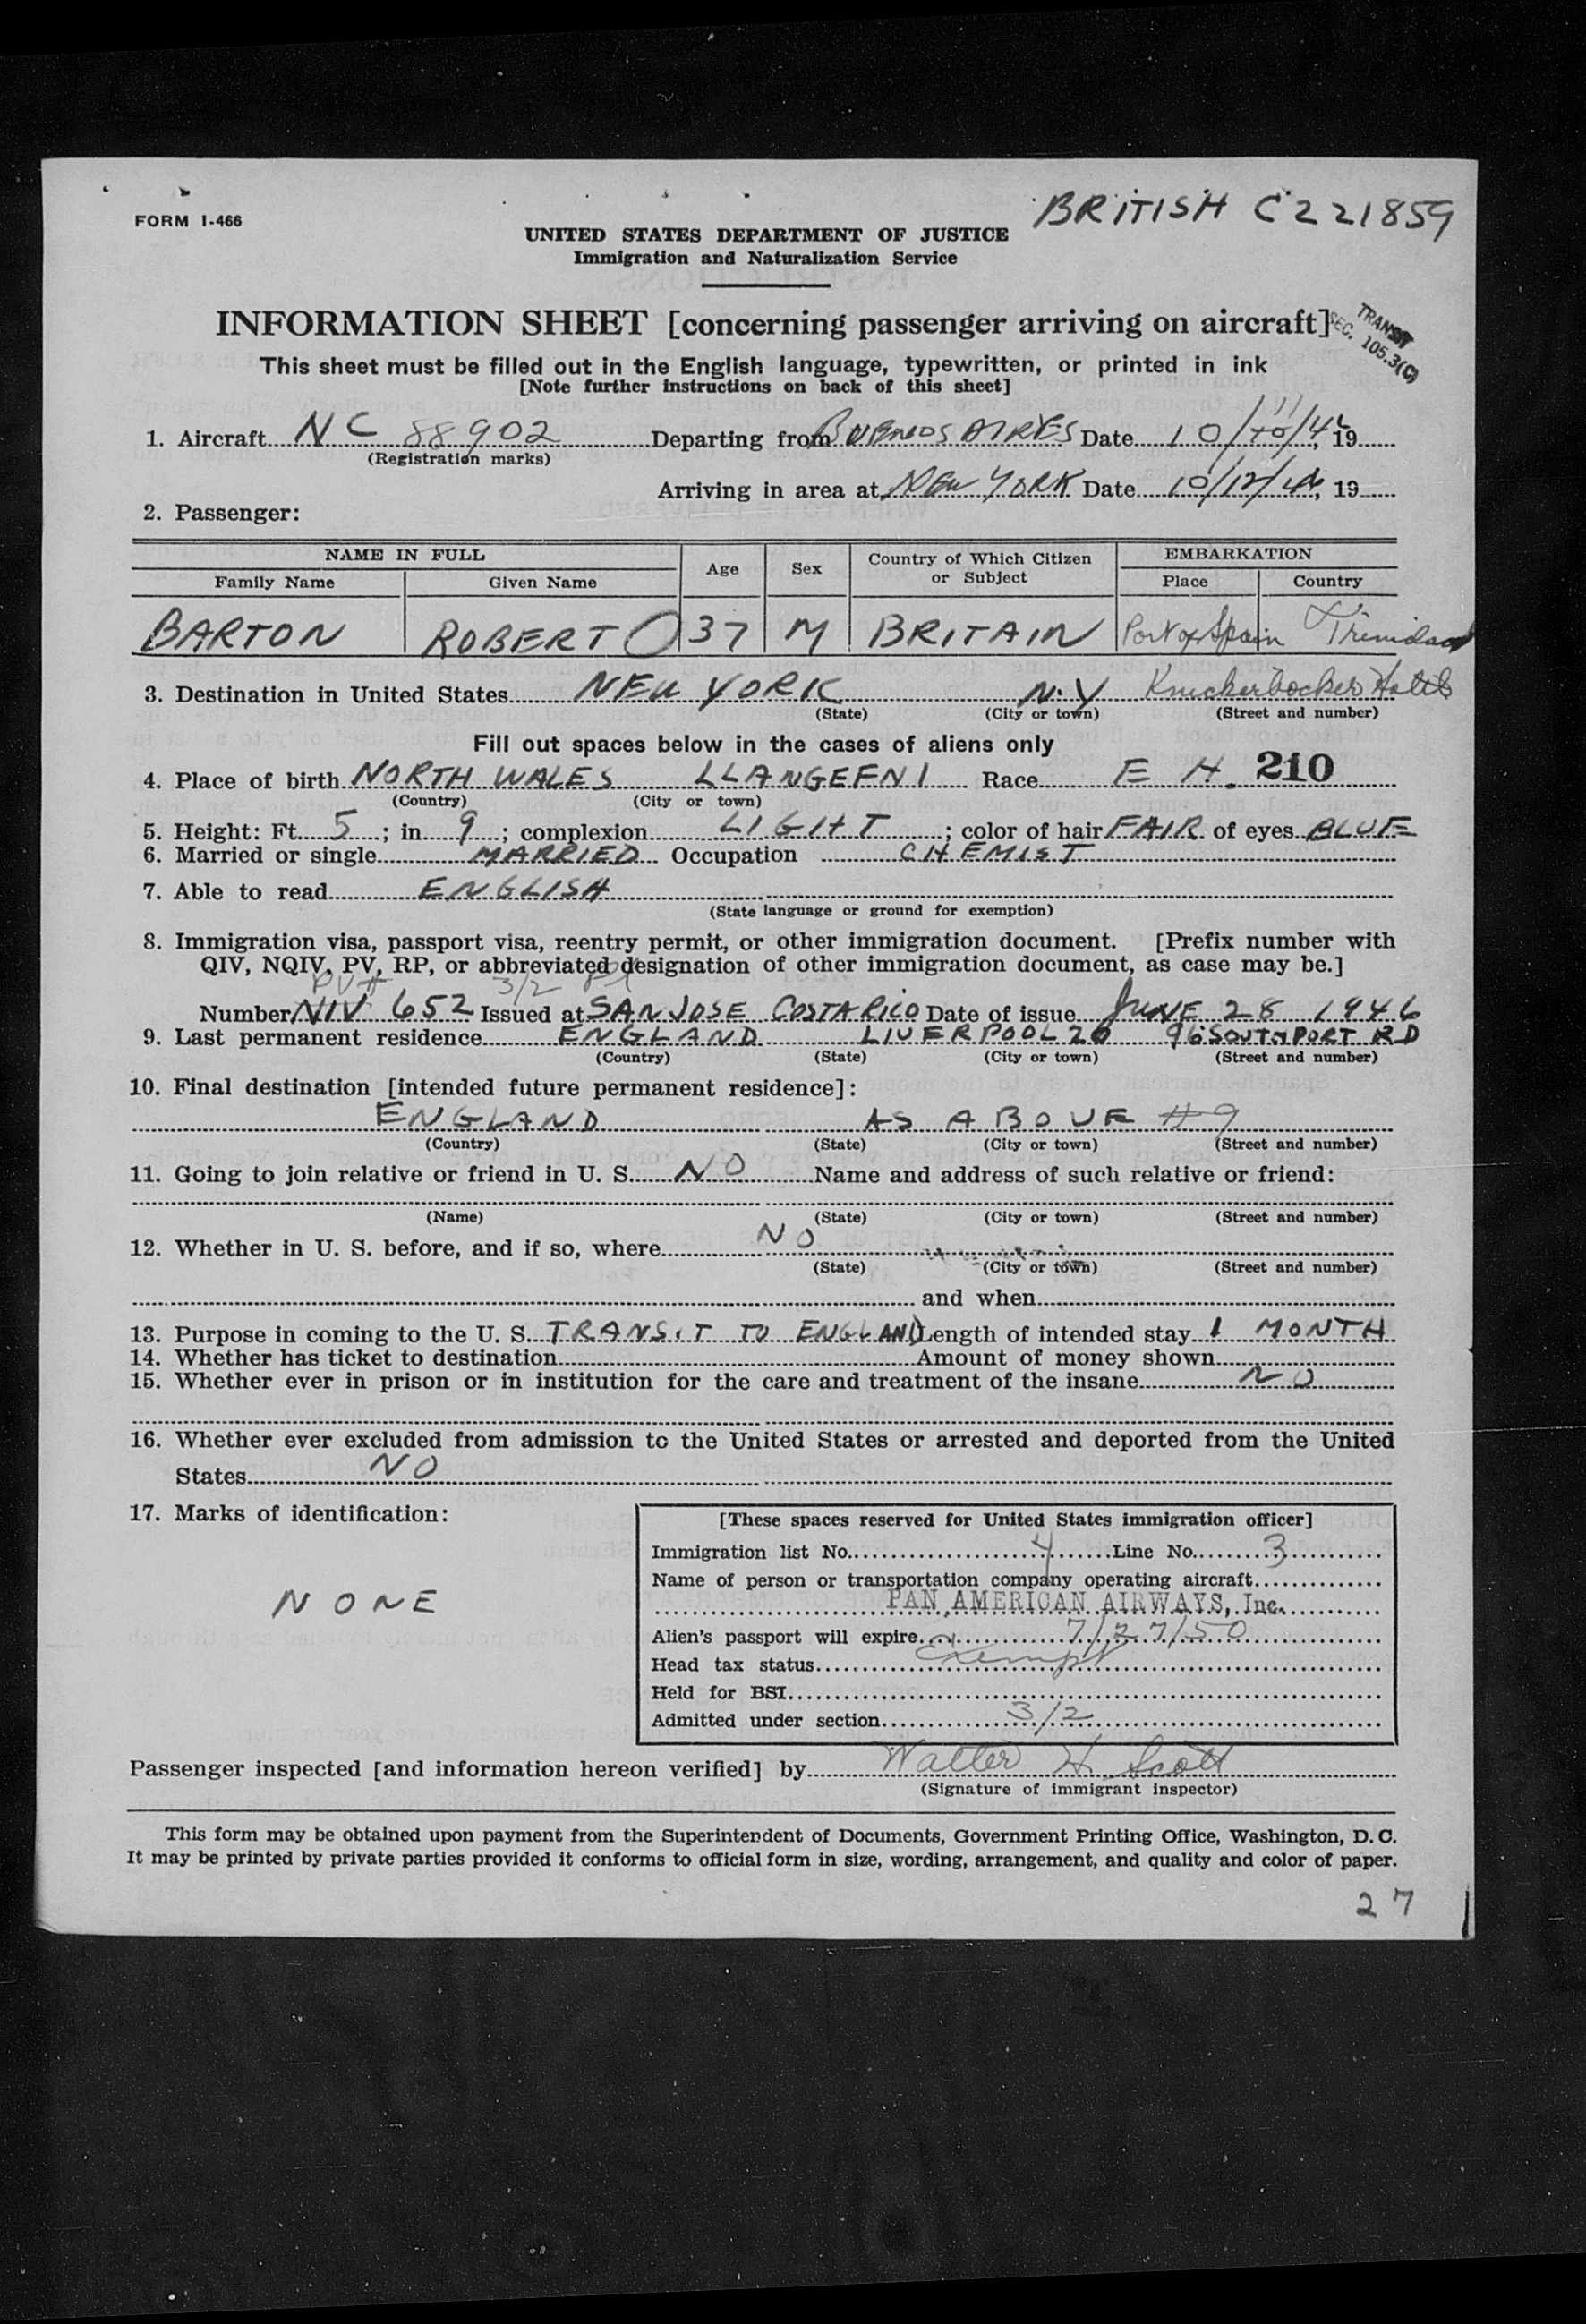 BRITISH C221859
FORM I-466
UNITED STATES DEPARTMENT OF JUSTICE
Immigration and Naturalization Service
INFORMATION SHEET [concerning passenger arriving on aircraft]
TRANSIT
SEC. 105.3(C)
This sheet must be filled out in the English language, typewritten, or printed in ink
[Note further instructions on back of this sheet]
11
1. Aircraft NC 88902 Departing from BUENOS AIRES Date 10/10/46, 19
(Registration marks)
Arriving in area at NEW YORK Date 10/12/46, 19
2. Passenger:
NAME IN FULL Age Sex Country of Which Citizen or Subject EMBARKATION
Family Name Given Name Place Country
BARTON ROBERT O 37 M BRITAIN Port of Spain Trinidad
3. Destination in United States NEW YORK N.Y Knickerbocker Hotel
(State) (City or town) (Street and number)
Fill out spaces below in the cases of aliens only
4. Place of birth NORTH WALES LLANGEFNI Race E H. 210
(Country) (City or town)
5. Height: Ft. 5; in 9; complexion LIGHT; color of hair FAIR of eyes BLUE
6. Married or single MARRIED Occupation CHEMIST
7. Able to read ENGLISH
(State language or ground for exemption)
8. Immigration visa, passport visa, reentry permit, or other immigration document. [Prefix number with
QIV, NQIV, PV, RP, or abbreviated designation of other immigration document, as case may be.]
PV# 3/2
Number NIV 652 Issued at SAN JOSE COSTA RICO Date of issue JUNE 28 1946
9. Last permanent residence ENGLAND LIVERPOOL 20 96 SOUTHPORT RD
(Country) (State) (City or town) (Street and number)
10. Final destination [intended future permanent residence]:
ENGLAND AS ABOVE #9
(Country) (State) (City or town) (Street and number)
11. Going to join relative or friend in U. S. NO Name and address of such relative or friend:
(Name) (State) (City or town) (Street and number)
12. Whether in U. S. before, and if so, where NO
(State) (City or town) (Street and number)
and when
13. Purpose in coming to the U. S. TRANSIT TO ENGLAND Length of intended stay 1 MONTH
14. Whether has ticket to destination Amount of money shown
15. Whether ever in prison or in institution for the care and treatment of the insane NO
16. Whether ever excluded from admission to the United States or arrested and deported from the United
States NO
17. Marks of identification:
NONE
[These spaces reserved for United States immigration officer]
Immigration list No. 4 Line No. 3
Name of person or transportation company operating aircraft
PAN AMERICAN AIRWAYS, Inc.
Alien's passport will expire 7/27/50
Head tax status Exempt
Held for BSI
Admitted under section 3/2
Passenger inspected [and information hereon verified] by Walter H. Scott
(Signature of immigrant inspector)
This form may be obtained upon payment from the Superintendent of Documents, Government Printing Office, Washington, D. C.
It may be printed by private parties provided it conforms to official form in size, wording, arrangement, and quality and color of paper.
27